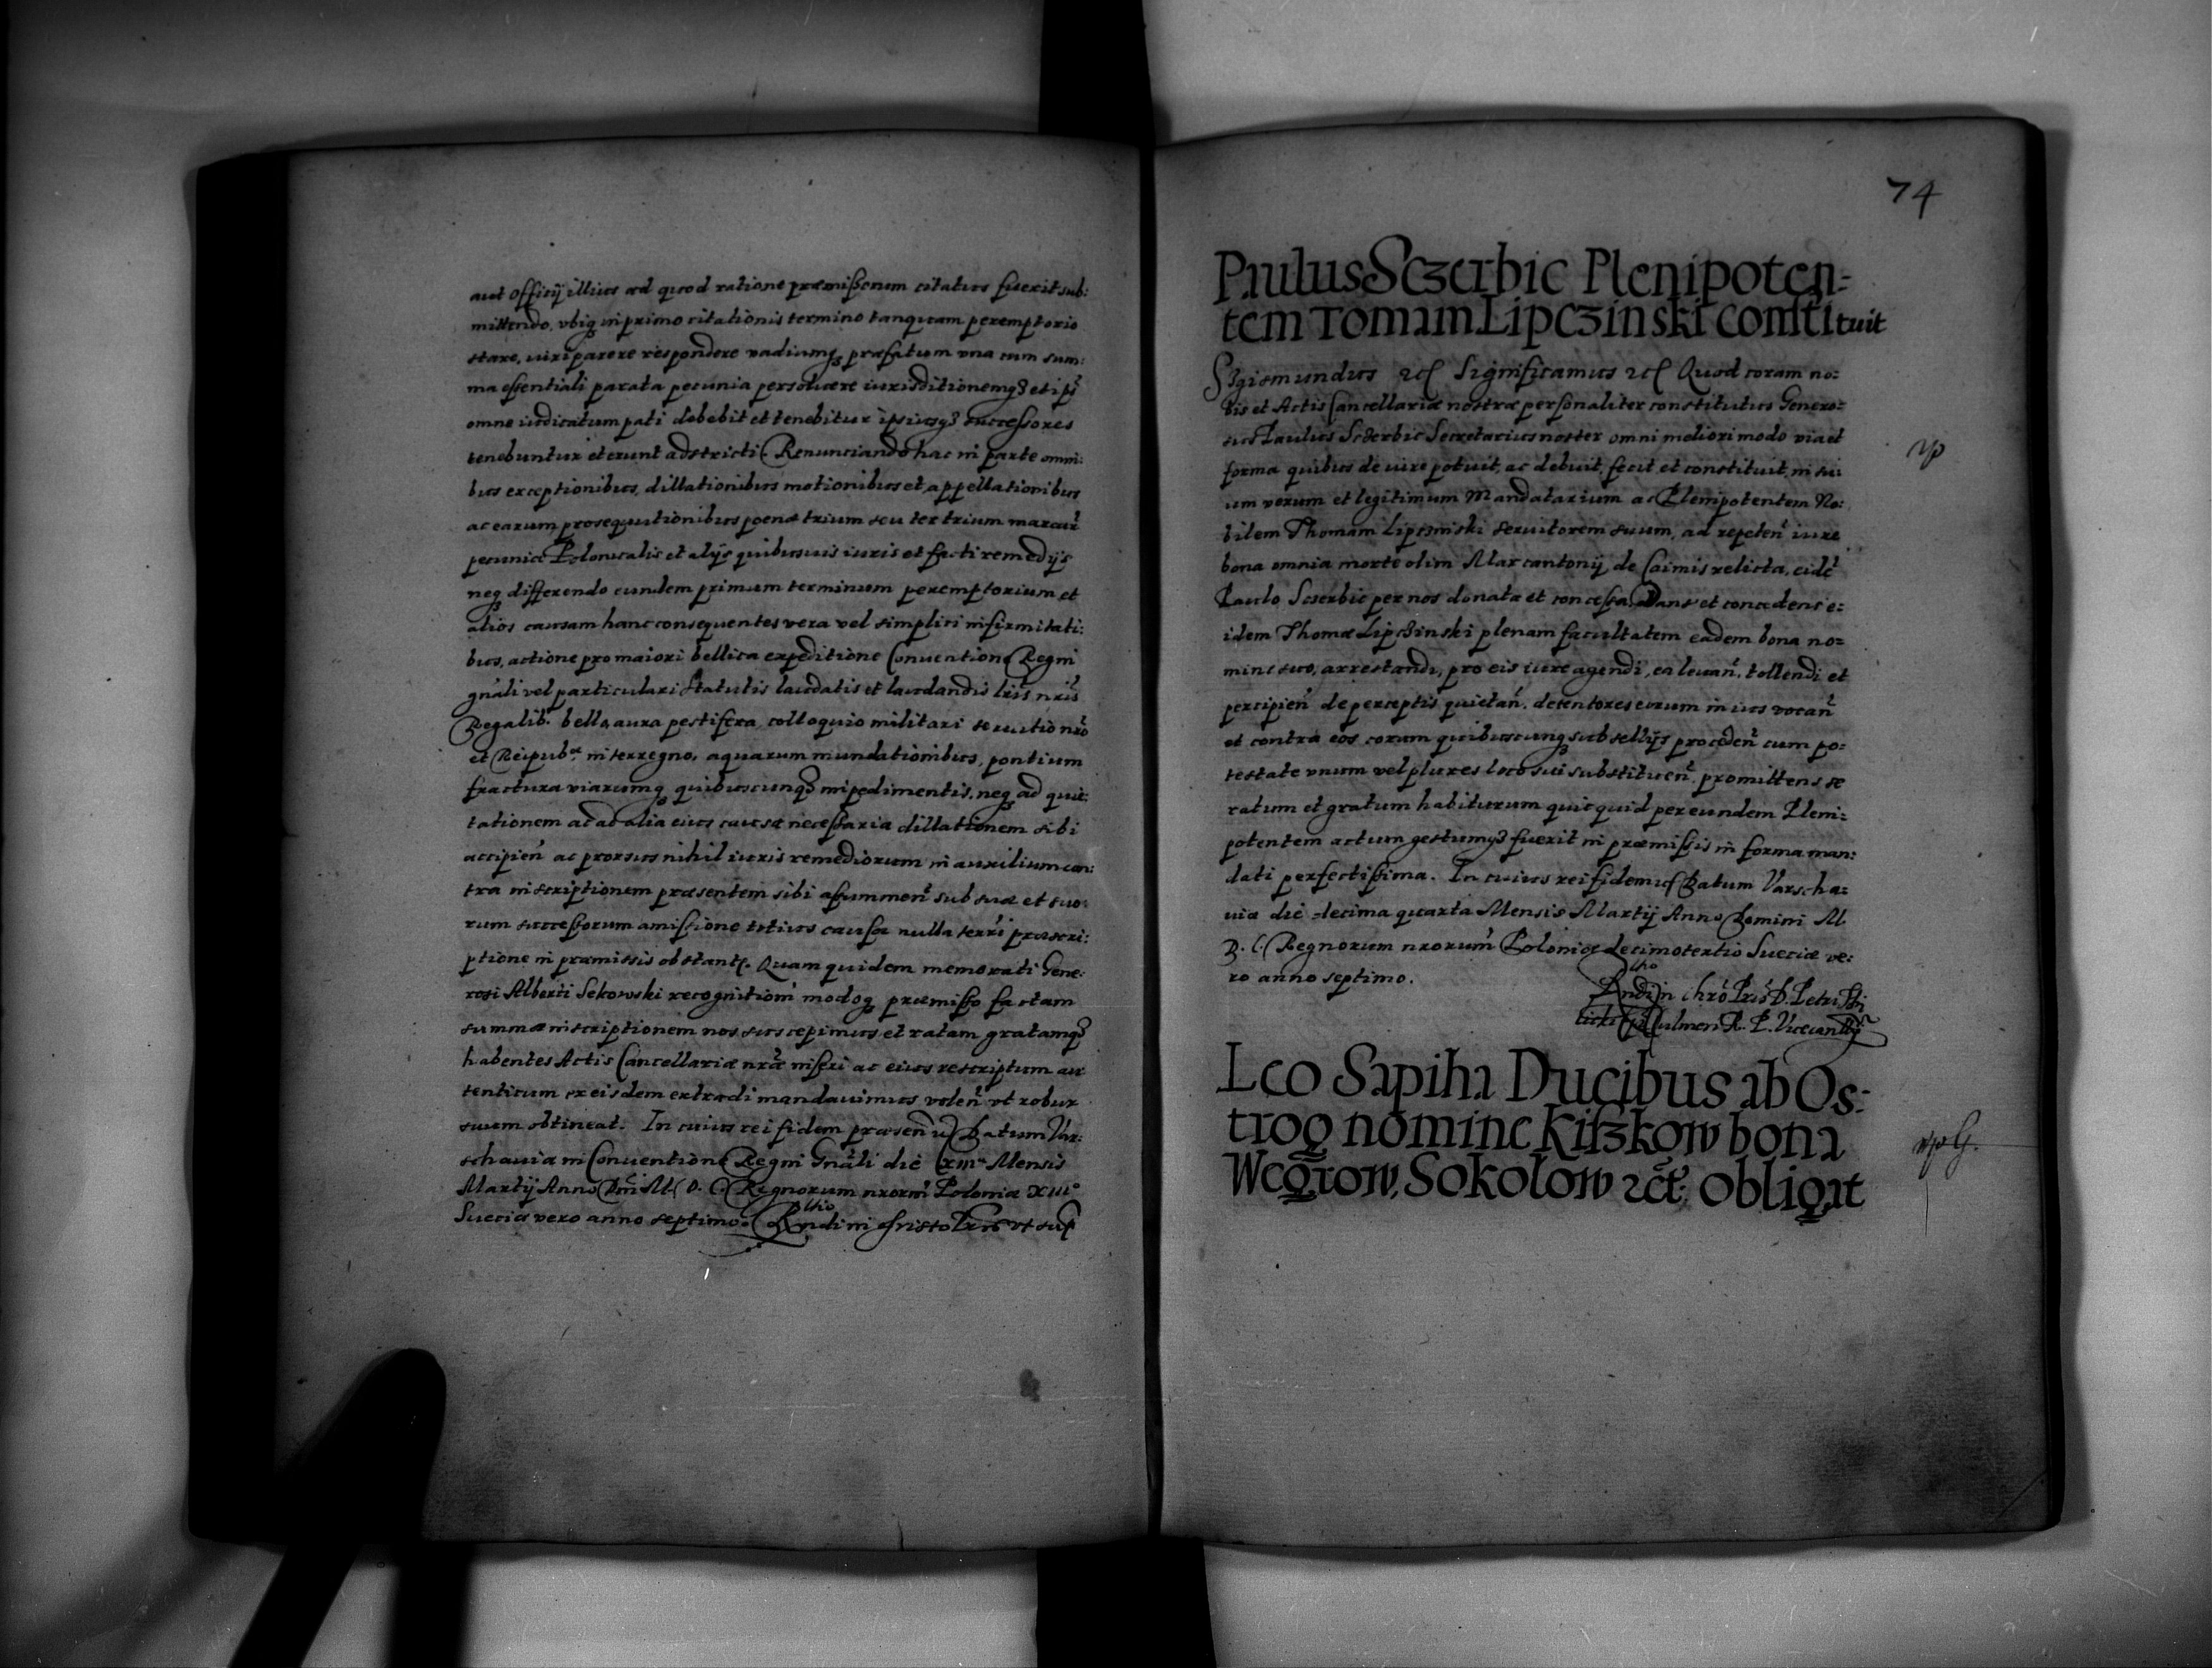 aut Officij illius ad quod ratione præmissorum citatus fuerit sub:
mittendo, vbiq in primo citationis termino tanquam peremptorio
stare, iuri parere respondere vadiumq præfatum vna cum sum:
ma essentiali parata pecunia persoluere iurisditionemq et ips
omne iudicatum pati debebit et tenebitur ipsiusq successores
tenebuntur et erunt adstricti. Renunciando hac in parte omni:
bus exceptionibus, dillationibus motionibus et appellationibus
ac earum prosequutionibus poenæ trium seu ter trium marcar
pecuniæ Polonicalis et alijs quibusuis iuris et facti remedijs
neq differendo eundem primum terminum peremptorium et
alios causam hanc consequentes vera vel simplici infirmitati:
bus, actione pro maiori bellica expeditione Conventione Regni
gnali vel particulari statutis laudatis et laudandis lris nris
Regalib. bello, aura pestifera, colloquio militari seruitio nro
et Reipub.æ interregno, aquarum inundationibus, pontium
fractura viarumq quibuscunq impedimentis, neq ad quie:
tationem ac ad alia eius causæ necessaria dillationem sibi
accipien ac prorsus nihil iuris remediorum in auxilium con:
tra inscriptionem præsentem sibi assummen sub sua et suo:
rum successorum amissione totius causæ nulla terri præscri:
ptione in præmissis obstante. Quam quidem memorati Gene:
rosi Alberti Sekowski recognitiom modoq præmisso factam
summæ inscriptionem nos suscepimus et ratam gratamq
habentes Actis Cancellariæ nræ inseri ac eius rescriptum au
tenticum ex eisdem extradi mandauimus volen vt robur
suum obtineat. In cuius rei fidem præsen Datum Var:
schauiæ in Conuentione Regni Gnali die Mensis
Martij Anno Dni M. D. C. Regnorum nrorm Poloniæ XIII°
Sueciæ vero anno septimo. Rndi in Christo Pris vt sup
74
Paulus Sczerbic Plenipoten=
tem Tomam Lipczinski constituit
Sigismundus etc Significamus etc Quod coram no:
bis et Actis Cancellariæ nostræ personaliter constitutus Genero:
sus Paulus Sczerbic Secretarius noster omni meliori modo via et
forma quibus de iure potuit, ac debuit, fecit et constituit, in su:
um verum et legitimum Mandatarium ac Plenipotentem No:
bilem Thomam Lipczinski seruitorem suum, ad repeten iure
bona omnia morte olim Marcantonij de Caimis relicta, eide
Paulo Sczerbic per nos donata et concessa, Dans et concedens e:
idem Thomæ Lipczinski plenam facultatem eadem bona no=
mine suo, arrestandi, pro eis iure agendi, ea leuan, tollendi et
percipien de perceptis quietan, detentores eorum in ius vocan
et contra eos coram quibuscunq subsellijs proceden cum po:
testate vnum vel plures loco sui substituen, promittens se
ratum et gratum habiturum quicquid per eundem Pleni:
potentem actum gestumq fuerit in præmissis in forma man:
dati perfectissima. In cuius rei fidem Datum Varscha:
uiæ die decima quarta Mensis Martij Anno Domini M.
D. C. Regnorum nrorum Poloniæ decimotertio Sueciæ ve:
ro anno septimo.
Rndi in Chro Pris D. Petri
Culmen R. P. Vicecan
Leo Sapiha Ducibus ab Os:
trog nomine Kiszkow bona
Wegrow, Sokolow etc: obligat